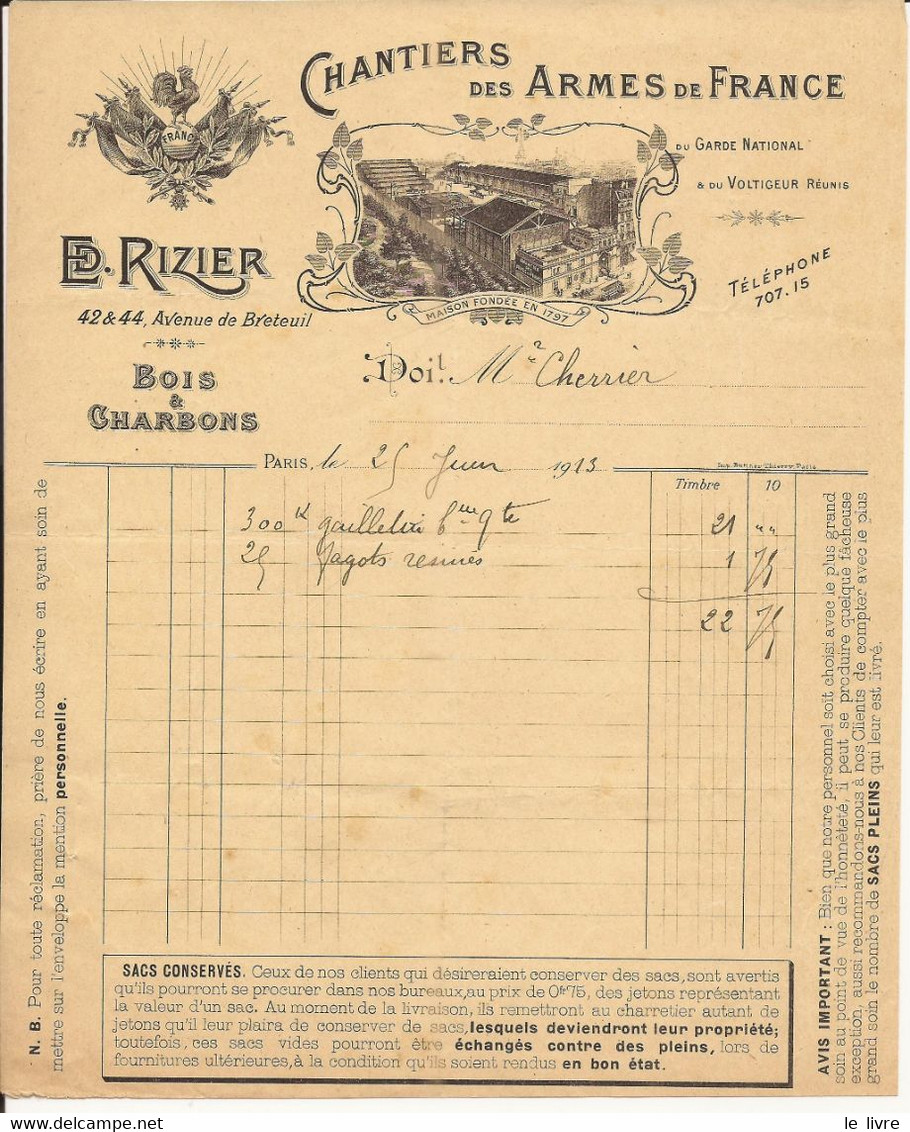 CHANTIERS
DES ARMES DE FRANCE
DU GARDE NATIONAL
& DU VOLTIGEUR RÉUNIS
TÉLÉPHONE
707.15
FRANCE
MAISON FONDÉE EN 1797
ED. RIZIER
42 & 44, Avenue de Breteuil
BOIS
&
CHARBONS
Doit Mr Cherrier
PARIS, le 25 Juin 1913
Timbre 10
300 k gailletin bme qte 21 " "
25 fagots resinés 1 75
22 75
N. B. Pour toute réclamation, prière de nous écrire en ayant soin de
mettre sur l'enveloppe la mention personnelle.
AVIS IMPORTANT : Bien que notre personnel soit choisi avec le plus grand
soin au point de vue de l'honnêteté, il peut se produire quelque fâcheuse
exception, aussi recommandons-nous à nos Clients de compter avec le plus
grand soin le nombre de SACS PLEINS qui leur est livré.
SACS CONSERVÉS. Ceux de nos clients qui désireraient conserver des sacs, sont avertis
qu'ils pourront se procurer dans nos bureaux, au prix de 0fr75, des jetons représentant
la valeur d'un sac. Au moment de la livraison, ils remettront au charretier autant de
jetons qu'il leur plaira de conserver de sacs, lesquels deviendront leur propriété;
toutefois, ces sacs vides pourront être échangés contre des pleins, lors de
fournitures ultérieures, à la condition qu'ils soient rendus en bon état.
le livre